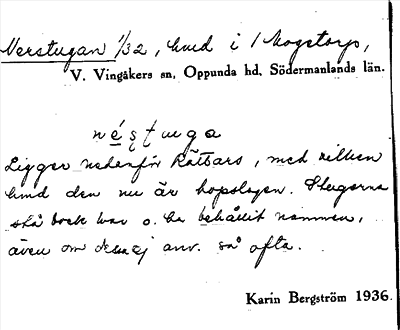 Verstugan 1/32, hmd i 1 Mogetorp,
V. Vingåkers sn, Oppunda hd, Södermanlands län.
Ligger nedanför Rättars, med vilken
hmd den nu är hopslagen. Stugorna
stå dock kvar o. ha behållit namnen,
även om de ej anv. så ofta.
Karin Bergström 1936.